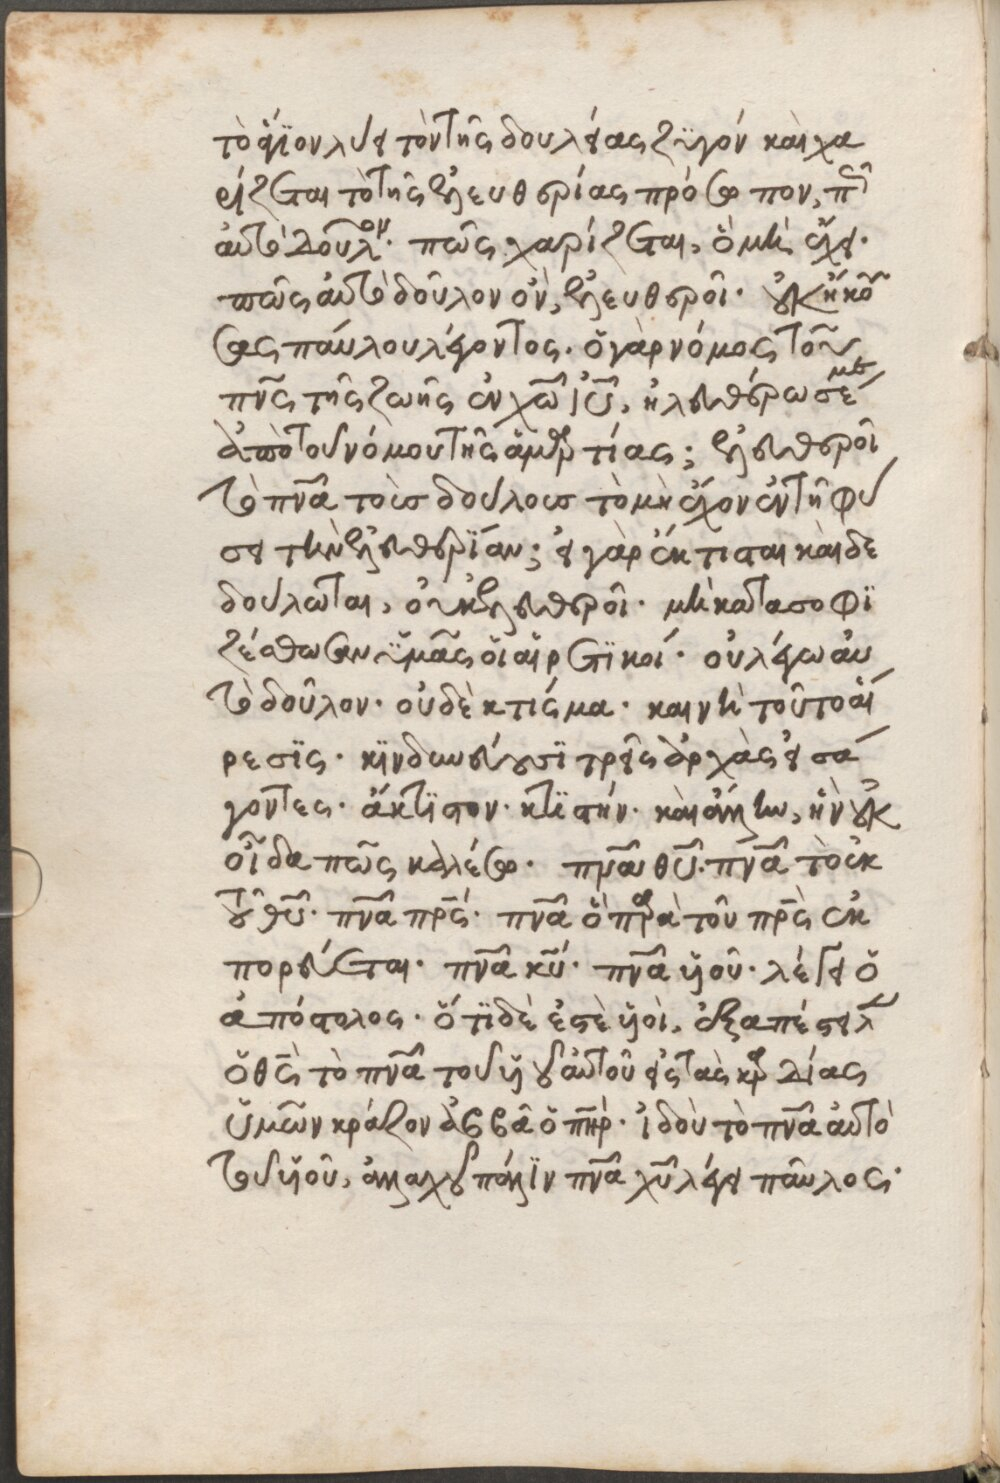 τὸ ἅγϊον λύει τὸν τῆς δουλείας ζϋγόν καὶ χα
ρίζεται τὸ τῆς ἐλευθερίας πρόσωπον, πῶς
αὐτὸ δοῦλον· πῶς χαρίζεται, ὃ μὴ ἔχει·
πῶς αὐτὸ δοῦλον ὂν, ἐλευθεροῖ· οὐκ ἤκου
σας παύλου λέγοντος· ὅ γὰρ νόμος τοῦ
πν̅ς τῆς ζωῆς ἐν χω̅ ιυ̅, ἠλευθέρωσέ με
ἀπὸ τοῦ νόμου τῆς ἁμαρτίας; ἐλευθεροῖ
τὸ πνα̅ τοὺσ δούλουσ τὸ μὴ ἔχον ἐν τῆ φύ
σει τὴν ἐλευθερΐαν; εἰ γὰρ ἔκτισται καὶ δε
δούλωται, οὐκ ἐλευθεροῖ· μὴ κατασοφϊ
ζέσθωσαν ϋμᾶς ὅι αἱρετϊκοί· οὐ λέγω αὐ
τὸ δοῦλον· οὐδὲ κτίσμα· καινὴ τοῦτο αἵ
ρεσϊς· κϊνδυνεύουσϊ τρεῖς ἀρχὰς εἰσά
γοντες· ἄκτϊστον· κτϊστήν· καὶ ἄλλην, ἣν οὐκ
οἶδα πῶς καλέσω· πνα̅ θυ̅· πνα̅ τὸ ἐκ
τοῦ θυ̅· πνα̅ πρ̅ς· πνα̅ ὃ παρὰ τοῦ πρ̅ς ἐκ
πορεύεται· πνα̅ κυ̅· πνα̅ υἱοῦ· λέγει ὅ
ἀπόστολος· ὅτϊ δὲ ἐστὲ υἱοὶ, ἐξαπέστειλεν
ὅ θς̅ τὸ πνα̅ τοῦ υἱοῦ αὐτοῦ εἰς τὰς καρδίας
ὑμῶν κράζον ἀββᾶ ὅ πηρ̅· ἰδοὺ τὸ πνα̅ αὐτὸ
τοῦ υἱοῦ, ἀλλαχοῦ πάλϊν πνα̅ χυ̅ λέγει παῦλος·